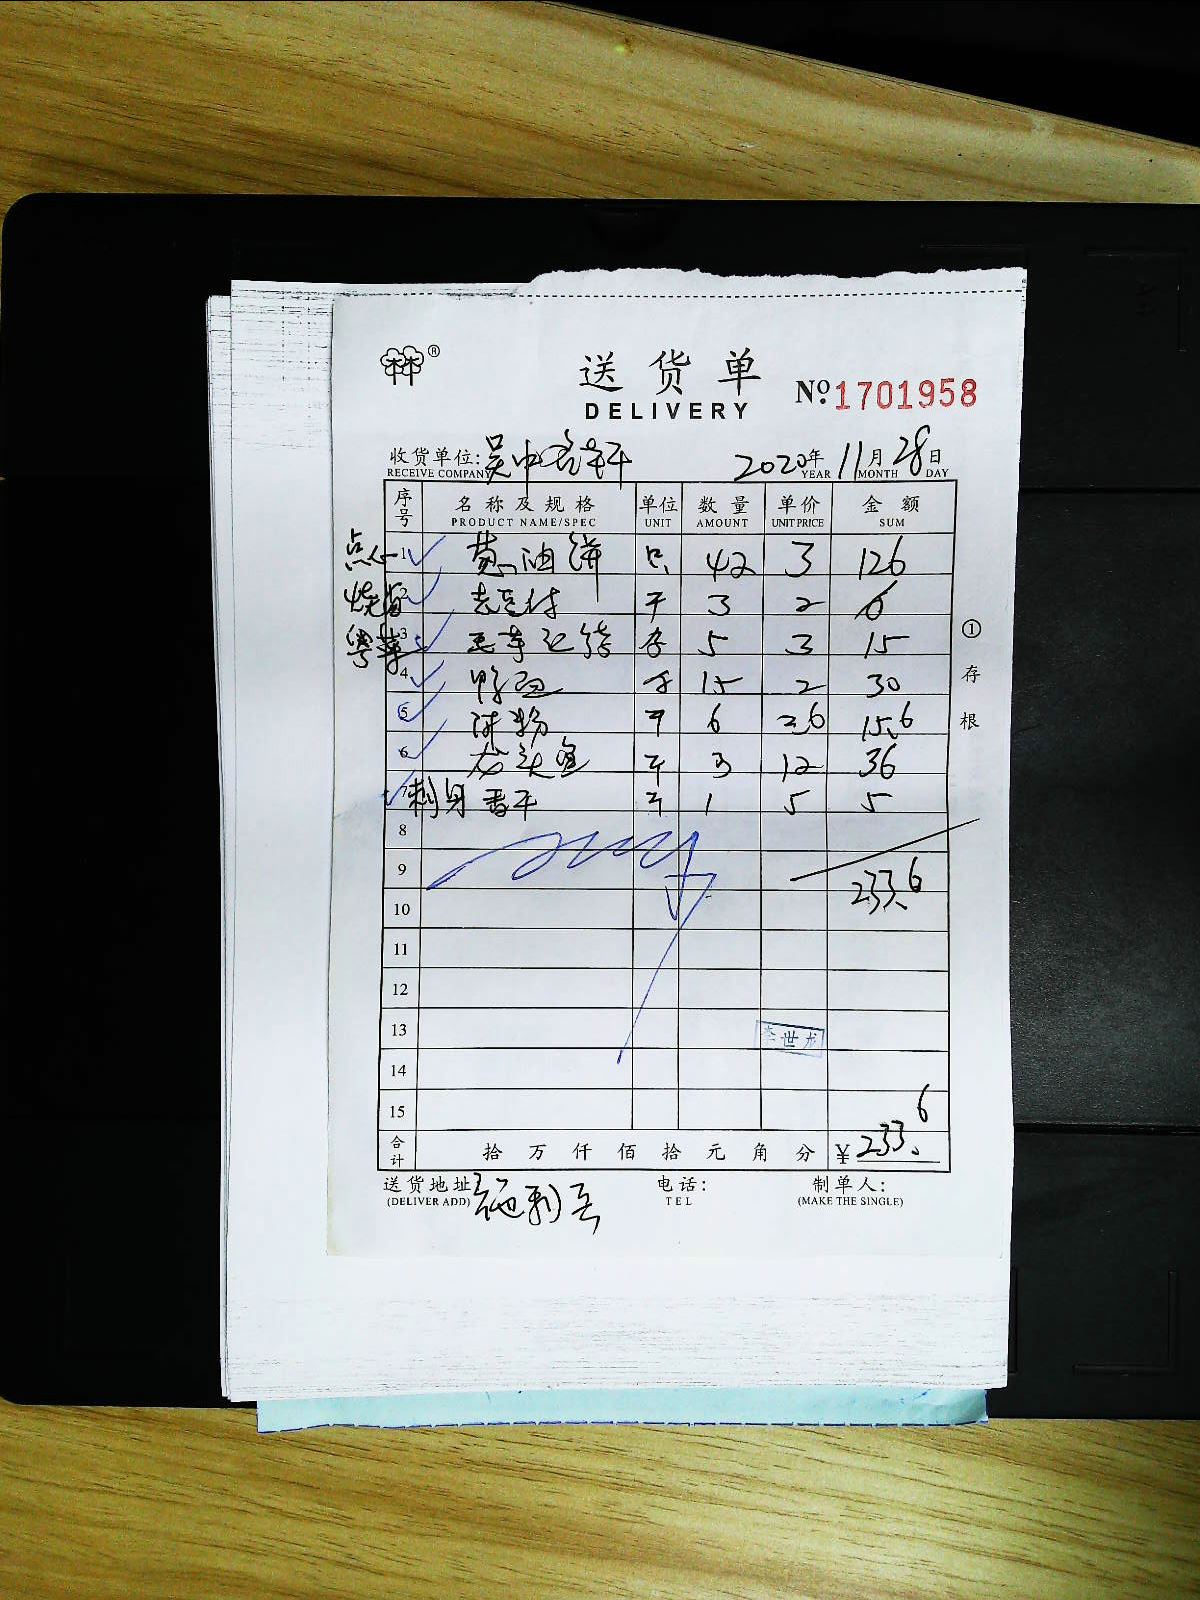 ®
送货单
DELIVERY
Nº 1701958
收货单位: 吴中 2020年 11月 28日
RECEIVE COMPANY YEAR MONTH DAY
序号 名称及规格 单位 数量 单价 金额
PRODUCT NAME/SPEC UNIT AMOUNT UNIT PRICE SUM
点心 1 葱油饼 只 42 3 126
2 3 2 6
3 5 3 15
4 15 2 30
5 6 2.6 15.6
6 龙头鱼 3 12 36
7 刺身 香干 1 5 5
8
9 233.6
10
11
12
13 李世龙
14
15
合计 拾 万 仟 佰 拾 元 角 分 ¥ 233.6
送货地址 电话: 制单人:
(DELIVER ADD) TEL (MAKE THE SINGLE)
① 存根